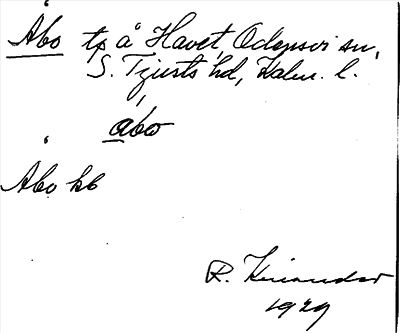 Åbo tp å Havet, Odensvi sn,
S. Tjusts hd, Kalm. l.
åbo
Åbo kb
R.
1929